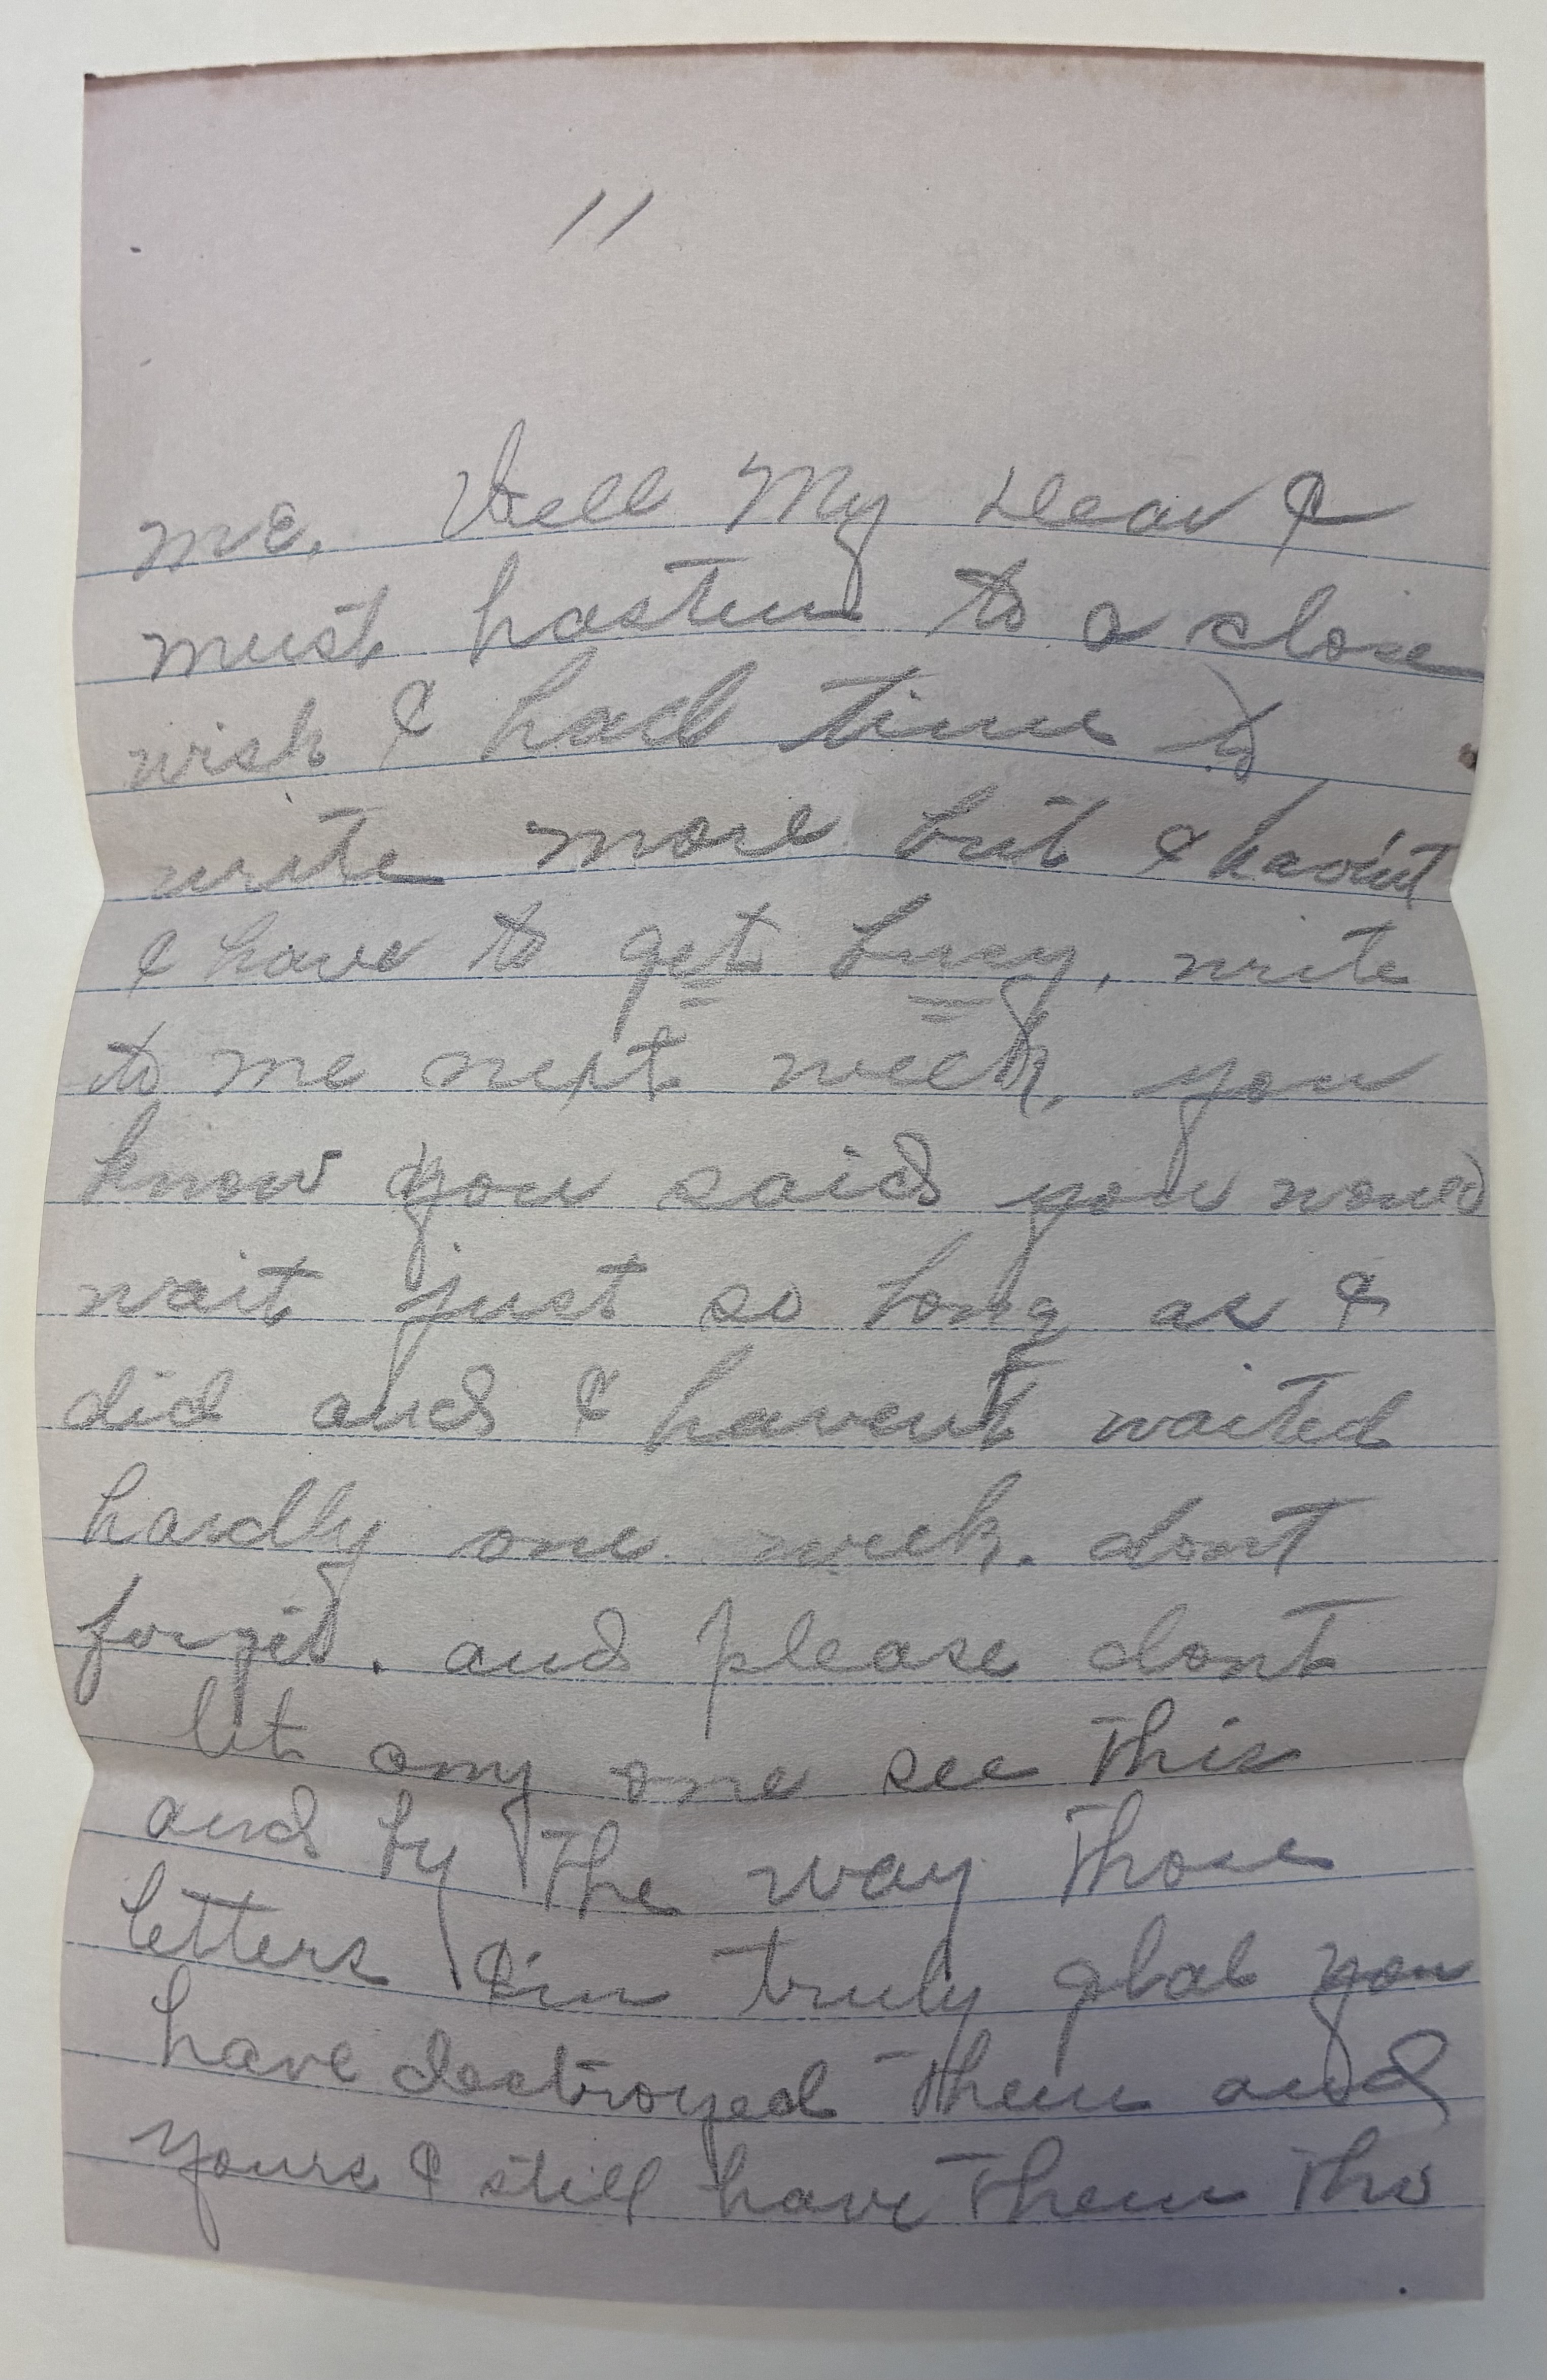 11
me. Well My Dear I
must hasten to a close
wish I had time to
write more but I hav'ent
I have to get busy, write
to me next week, you
know you said you would
wait just so long as I
did and I havent waited
hardly one week. dont
forget. and please dont
let any one see this
and by the way those
letters I'm truly glad you
have destroyed them and
yours I still have them tho